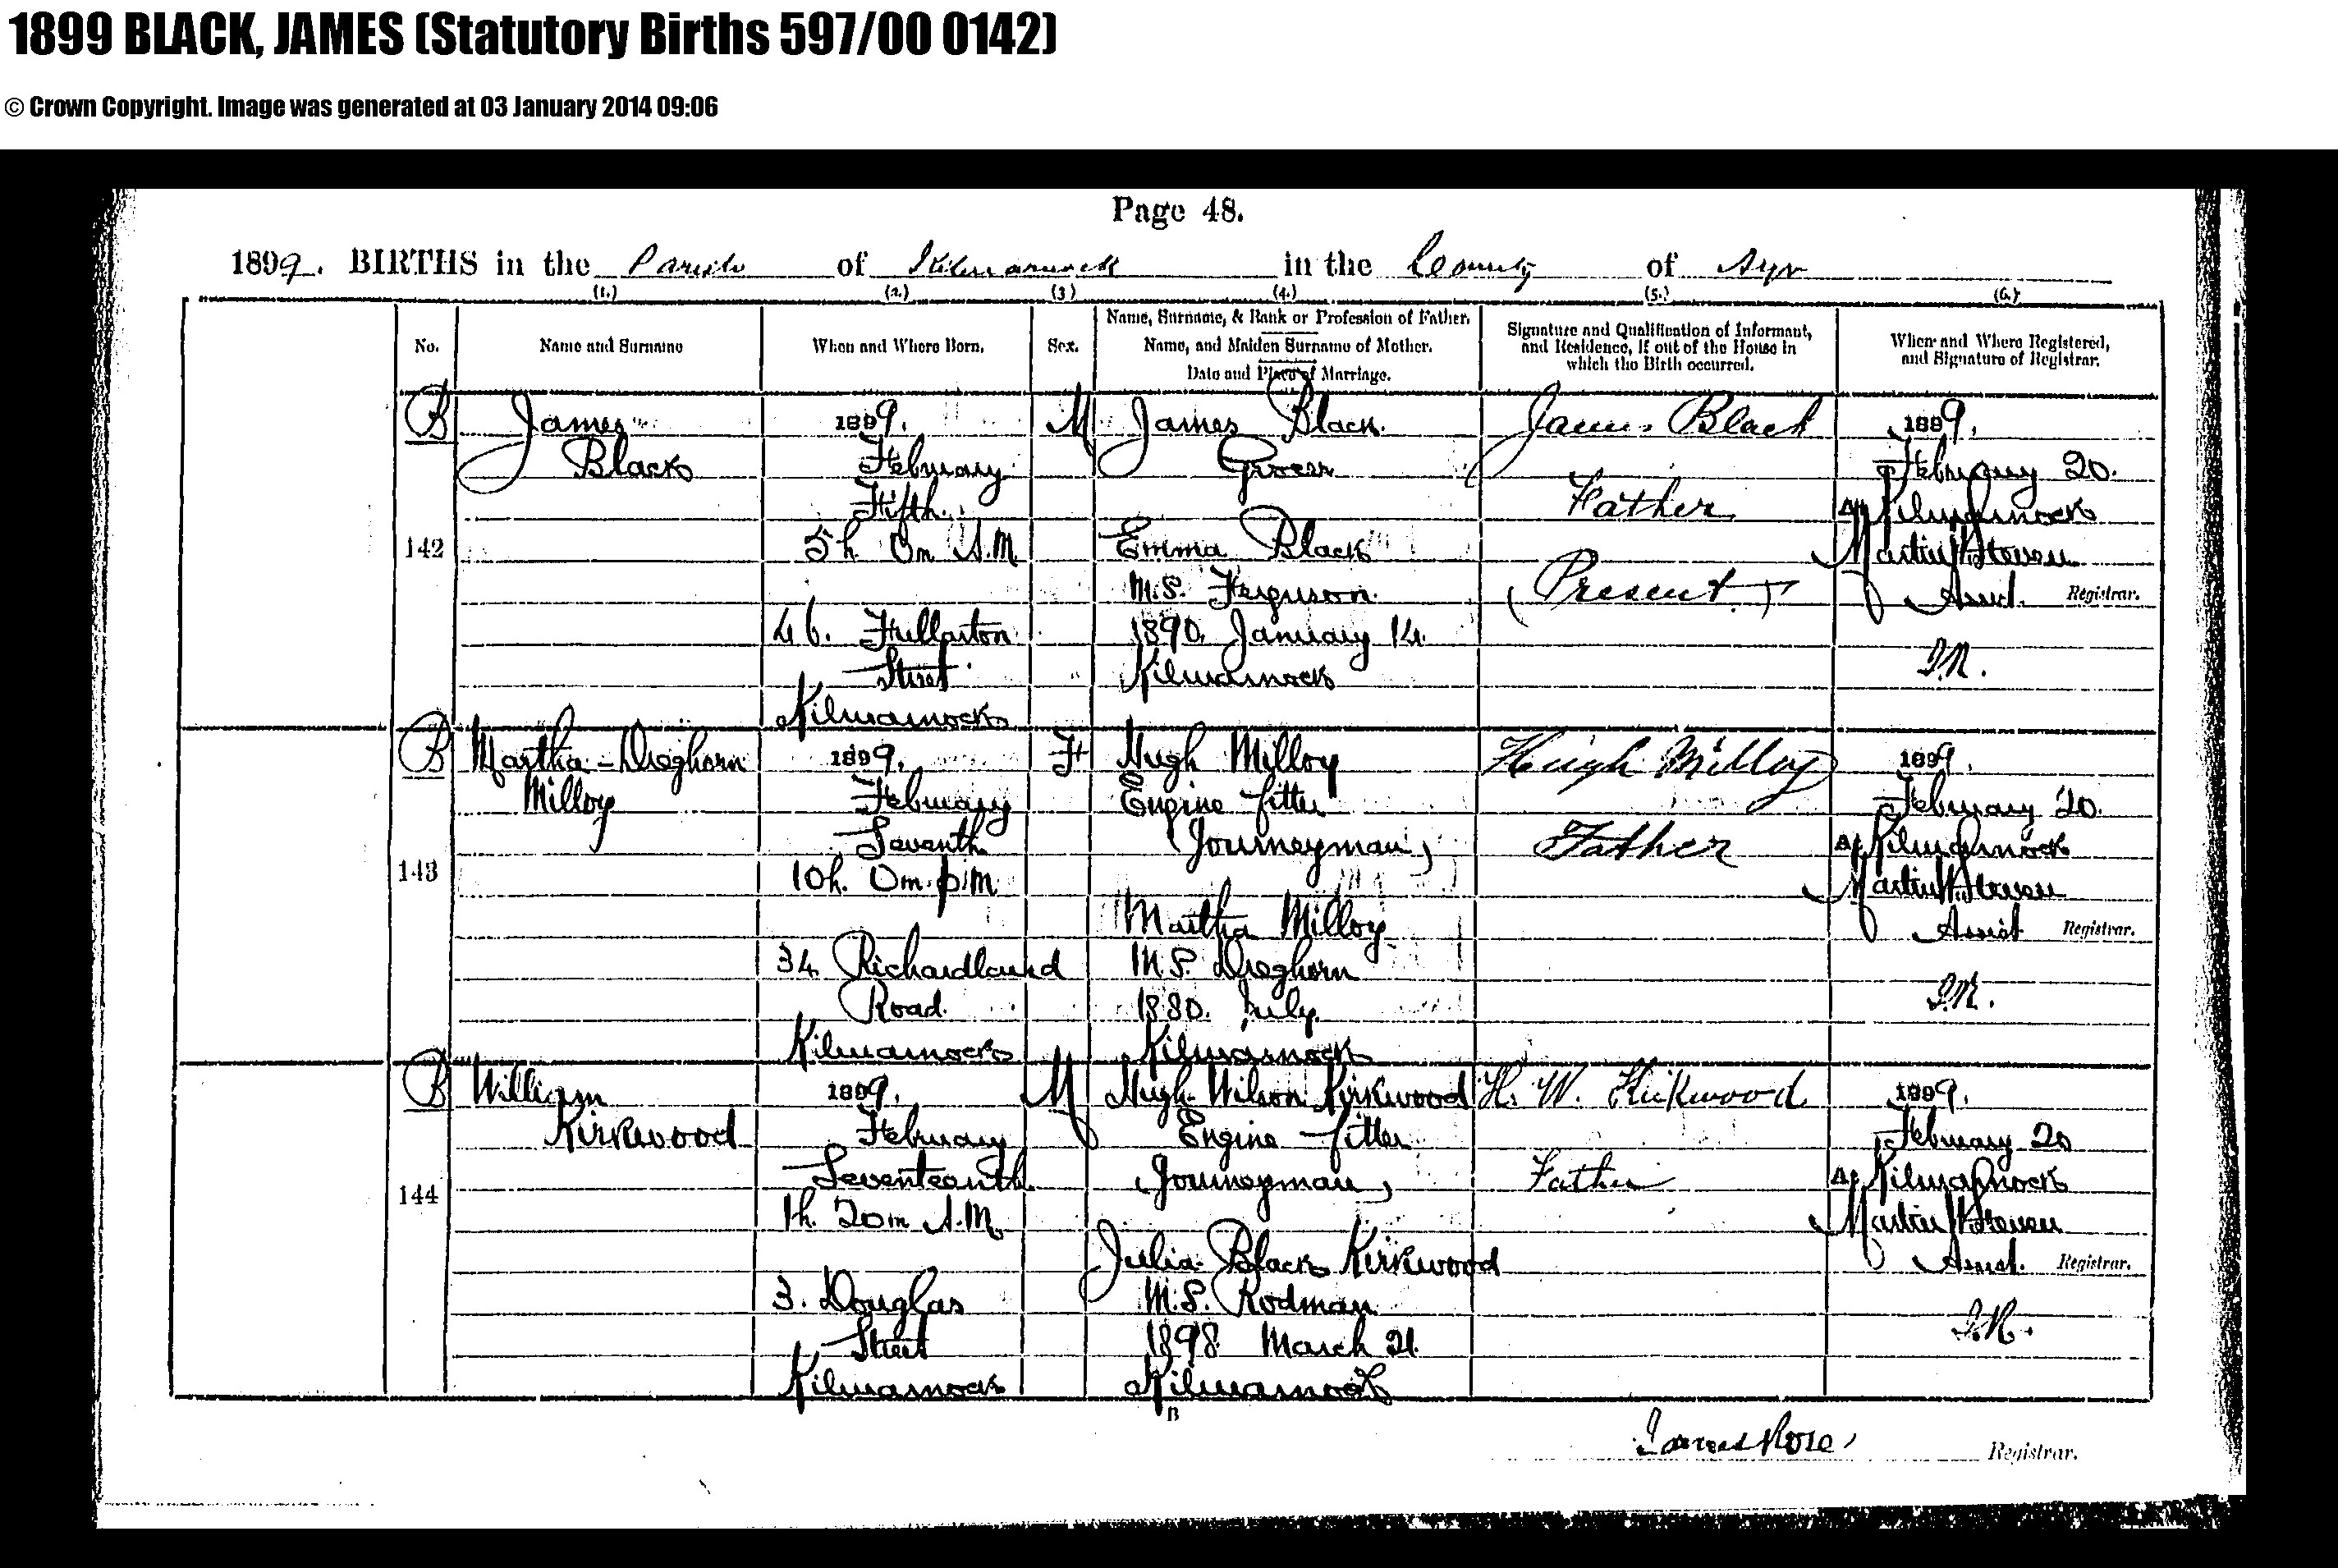 1899 BLACK, JAMES (Statutory Births 597/00 0142)
© Crown Copyright. Image was generated at 03 January 2014 09:06
Page 48.
1899. BIRTHS in the Parish of Kilmarnock in the County of Ayr
(1.) (2.) (3) (4.) (5.) (6.)
No.
Name and Surname
When and Where Born.
Sex.
Name, Surname, & Rank or Profession of Father.
Name, and Maiden Surname of Mother.
Date and Place of Marriage.
Signature and Qualification of Informant,
and Residence, if out of the House in
which the Birth occurred.
When and Where Registered,
and Signature of Registrar.
B
142
James
Black
1899.
February
Fifth.
5h. 0m A.M.
46. Fullarton
Street
Kilmarnock
M
James Black
Grocer
Emma Black
M.S. Ferguson
1890. January 14.
Kilmarnock
James Black
Father
(Present)
1899.
February 20.
At Kilmarnock
Martin Steven
Assist. Registrar.
J.R.
B
143
Martha Dreghorn
Milloy
1899.
February
Seventh
10h. 0m. p.m.
34 Richardland
Road
Kilmarnock
F
Hugh Milloy
Engine fitter
(Journeyman)
Martha Milloy
M.S. Dreghorn
1880. July.
Kilmarnock
Hugh Milloy
Father
1899.
February 20.
At Kilmarnock
Martin Steven
Assist Registrar.
J.R.
B
144
William
Kirkwood
1899.
February
Seventeenth
1h. 20m A.M.
3. Douglas
Street
Kilmarnock
M
Hugh Wilson Kirkwood
Engine fitter
(Journeyman)
Julia Black Kirkwood
M.S. Rodman
1898 March 21.
Kilmarnock
H. W. Kirkwood
Father
1899.
February 20
At Kilmarnock
Martin Steven
Assist. Registrar.
J.R.
B
James Rose, Registrar.